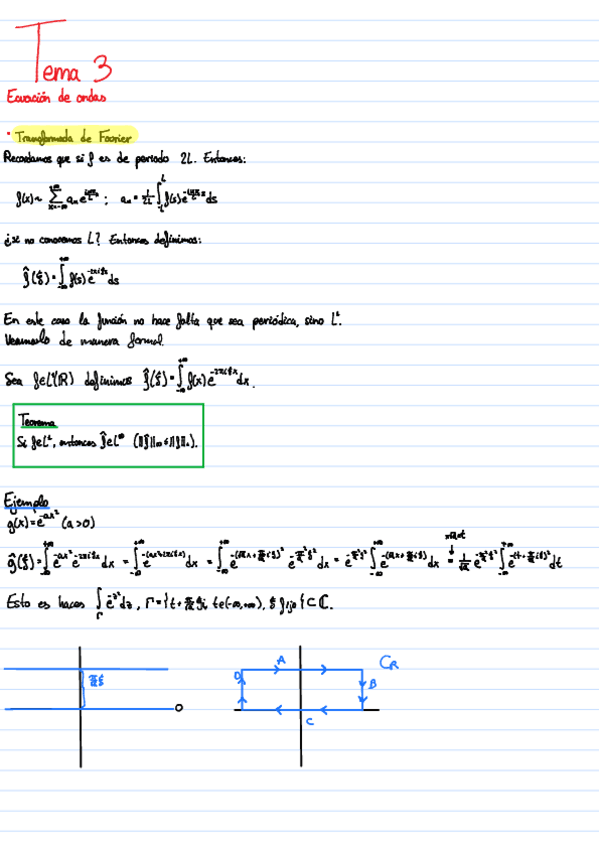 Tema 3
Ecuación de ondas
• Transformada de Fourier
Recordamos que si f es de periodo 2L. Entonces:
f(x) ~ ∑_{n=-∞}^{+∞} aₙ e^{iπnx/L} ; aₙ = 1/2L ∫_{-L}^{L} f(s) e^{-iπns/L} ds
¿si no conocemos L? Entonces definimos:
f̂(ξ) = ∫_{-∞}^{+∞} f(s) e^{-2πiξs} ds
En este caso la función no hace falta que sea periódica, sino L¹.
Veámoslo de manera formal.
Sea f∈L¹(ℝ) definimos f̂(ξ) = ∫_{-∞}^{+∞} f(x) e^{-2πiξx} dx.
Teorema
Si f∈L¹, entonces f̂∈L^∞ (‖f̂‖_∞ ≤ ‖f‖₁).
Ejemplo
g(x) = e^{-ax²} (a>0)
ĝ(ξ) = ∫_{-∞}^{+∞} e^{-ax²} e^{-2πiξx} dx = ∫_{-∞}^{+∞} e^{-(ax²+2πiξx)} dx = ∫_{-∞}^{+∞} e^{-(√a x + π/√a iξ)²} e^{-π²/a ξ²} dx = e^{-π²/a ξ²} ∫_{-∞}^{+∞} e^{-(√a x + π/√a iξ)²} dx = 1/√a e^{-π²/a ξ²} ∫_{-∞}^{+∞} e^{-(t + π/√a iξ)²} dt
x√a=t
Esto es hacer ∫_Γ e^{-z²} dz, Γ = {t + π/√a ξi t∈(-∞,+∞), ξ fijo} ⊂ ℂ.
π/√a ξ
0
A
B
C
D
C_R